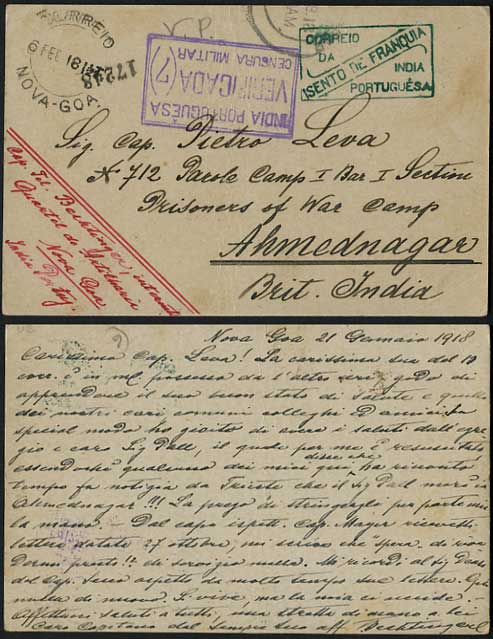 CORREIO
6 FEB 18
NOVA-GOA.
17248
V.P.
INDIA PORTUGUÊSA
VERIFICADA (7)
CENSURA MILITAR
CORREIO
DA
ISENTO DE FRANQUIA
INDIA
PORTUGUÊSA
Sig. Cap. Pietro Leva
No 712 Parole Camp I Bar I Section
Prisoners of War Camp
Ahmednagar
Brit. India
Quartel de Artilharia
Nova Goa
India Portug.
Nova Goa 21 Gennaio 1918
Carissimo Cap. Leva! La carissima sua del 10
corr. è in mio possesso da l'altro ieri, godo di
apprendere il suo buon stato di salute e quello
dei nostri cari comuni colleghi ed amici. In
special modo ho gioito di avere i saluti dall'egre-
gio e caro Sig. il quale per me è resuscitato
essendochè qualcuno dei miei qui, ha ricevuto
disse che
tempo fa notizia da Trieste che il Sig. morì in
Ahmednagar!!! La prego di stringergli per parte mia
la mano. Dal capo ispett. Cap. Mayer ricevetti
lettera datata 27 ottobre, mi scrive che spera di
Mi ricordi al Sig.
del Cap. aspetto da molto tempo sue lettere. Qui
nulla di nuovo. Si vive, ma la noia ci uccide.
Affettuosi saluti a tutti, una stretta di mano a lei
Caro Capitano dal sempre suo aff.